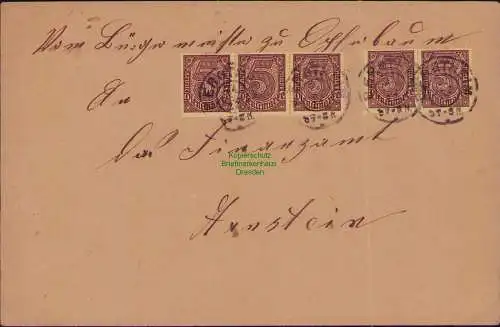 Vom Bürgermeister zu Opferbaum
An
Das Finanzamt
Arnstein
Kopierschutz
Briefmarkenhaus
Dresden
5 5 5 5 5